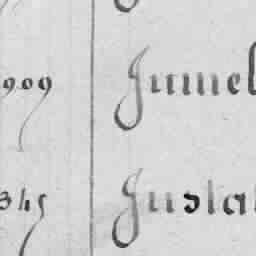 909 Jumel
345 Justa